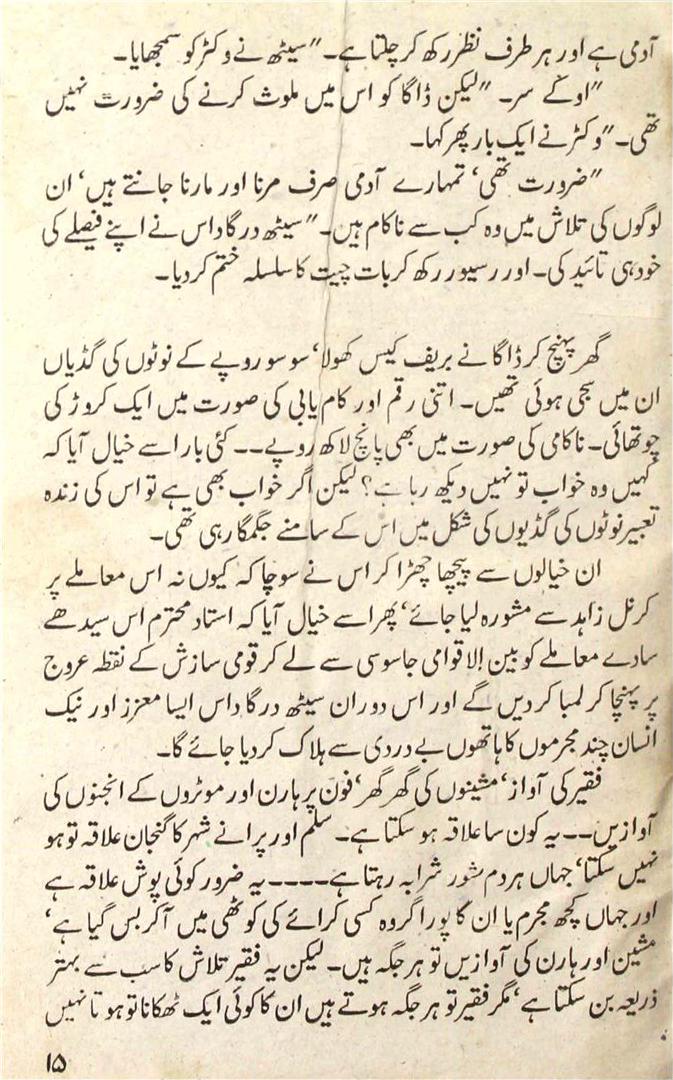 آدمی ہے اور ہر طرف نظر رکھ کر چلتا ہے۔" سیٹھ نے وکٹر کو سمجھایا۔
"اوکے سر۔ "لیکن ڈاگا کو اس میں ملوث کرنے کی ضرورت نہیں
تھی۔" وکٹر نے ایک بار پھر کہا۔
"ضرورت تھی، تمہارے آدمی صرف مرنا اور مارنا جانتے ہیں، ان
لوگوں کی تلاش میں وہ کب سے ناکام ہیں۔" سیٹھ درگاداس نے اپنے فیصلے کی
خود ہی تائید کی۔ اور رسیور رکھ کر بات چیت کا سلسلہ ختم کر دیا۔
گھر پہنچ کر ڈاگا نے بریف کیس کھولا، سو سو روپے کے نوٹوں کی گڈیاں
ان میں سجی ہوئی تھیں۔ اتنی رقم اور کام یابی کی صورت میں ایک کروڑ کی
چوتھائی۔ ناکامی کی صورت میں بھی پانچ لاکھ روپے۔۔ کئی بار اسے خیال آیا کہ
کہیں وہ خواب تو نہیں دیکھ رہا ہے؟ لیکن اگر خواب بھی ہے تو اس کی زندہ
تعبیر نوٹوں کی گڈیوں کی شکل میں اس کے سامنے جگمگا رہی تھی۔
ان خیالوں سے پیچھا چھڑا کر اس نے سوچا کہ کیوں نہ اس معاملے پر
کرنل زاہد سے مشورہ لیا جائے، پھر اسے خیال آیا کہ استاد محترم اس سیدھے
سادے معاملے کو بین الاقوامی جاسوسی سے لے کر قومی سازش کے نقطہ عروج
پر پہنچا کر لمبا کر دیں گے اور اس دوران سیٹھ درگا داس ایسا معزز اور نیک
انسان چند مجرموں کا ہاتھوں بے دردی سے ہلاک کر دیا جائے گا۔
فقیر کی آواز، مشینوں کی گھر گھر، فون پر ہارن اور موٹروں کے انجنوں کی
آوازیں۔۔ یہ کون سا علاقہ ہو سکتا ہے۔ سلم اور پرانے شہر کا گنجان علاقہ تو ہو
نہیں سکتا، جہاں ہر دم شور شرابہ رہتا ہے۔۔۔۔ یہ ضرور کوئی پوش علاقہ ہے
اور جہاں کچھ مجرم یا ان کا پورا گروہ کسی کرائے کی کوٹھی میں آکر بس گیا ہے،
مشین اور ہارن کی آوازیں تو ہر جگہ ہیں۔ لیکن یہ فقیر تلاش کا سب سے بہتر
ذریعہ بن سکتا ہے، مگر فقیر تو ہر جگہ ہوتے ہیں ان کا کوئی ایک ٹھکانا تو ہوتا نہیں
۱۵